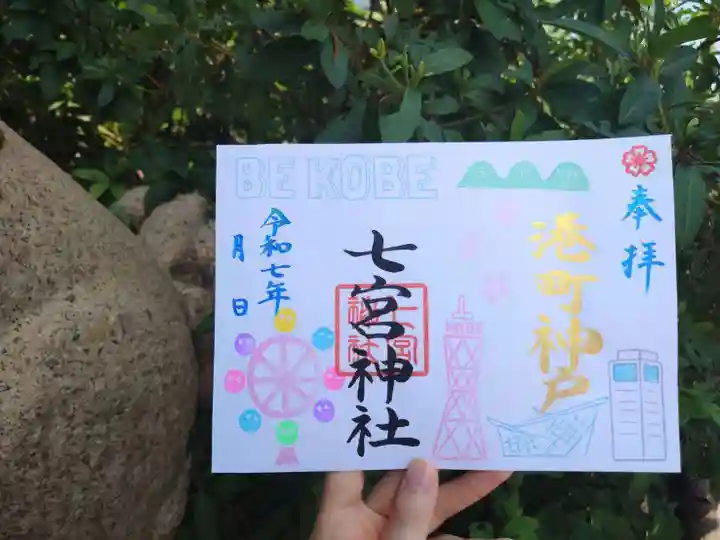 BE KOBE
奉拝
港町神戸
七宮神社
七宮
神社
令和七年
月 日